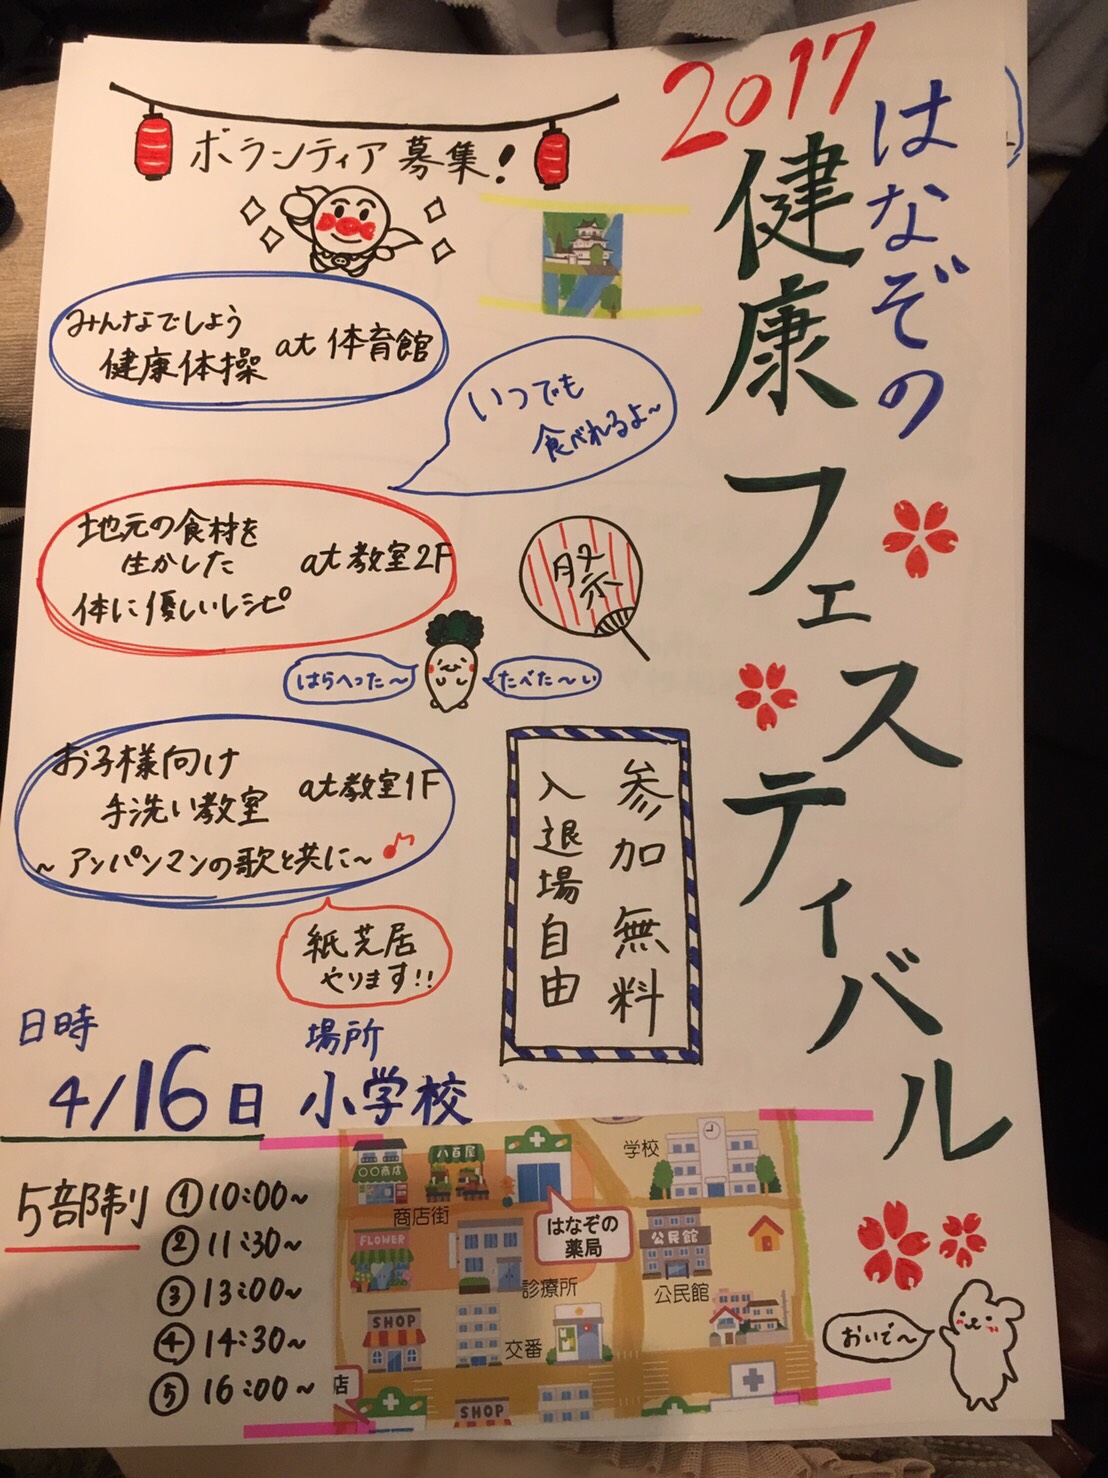 2017
はなぞの
健康フェスティバル
ボランティア募集!
みんなでしよう
健康体操 at 体育館
いつでも
食べれるよ~
地元の食材を
生かした at 教室2F
体に優しいレシピ
祭
はらへった~
たべた~い
お子様向け
手洗い教室 at 教室1F
~アンパンマンの歌と共に~♪
紙芝居
やります!!
参加無料
入退場自由
日時
4/16日
場所
小学校
5部制
①10:00~
②11:30~
③13:00~
④14:30~
⑤16:00~
〇〇商店
八百屋
学校
商店街
はなぞの
薬局
FLOWER
公民館
診療所
公民館
SHOP
交番
店
SHOP
おいで~